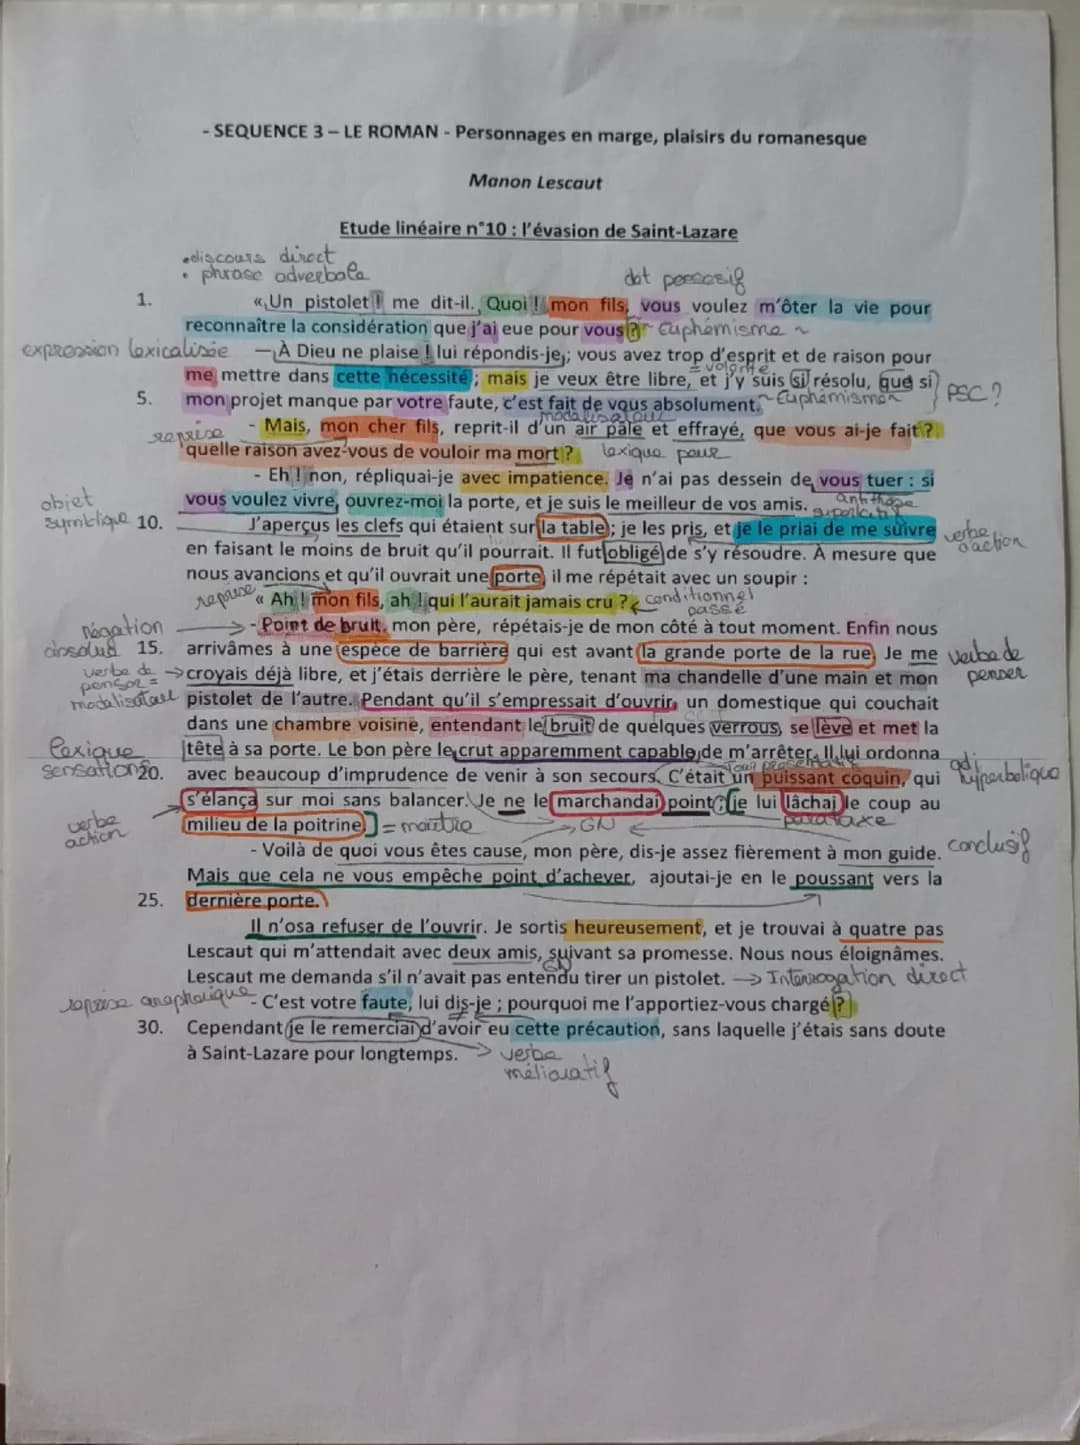 - SEQUENCE 3 – LE ROMAN - Personnages en marge, plaisirs du romanesque
Manon Lescaut
Etude linéaire n°10 : l'évasion de Saint-Lazare
• discours direct
• phrase adverbale
dét possessif
1. « Un pistolet ! me dit-il. Quoi ! mon fils, vous voulez m'ôter la vie pour
reconnaître la considération que j'ai eue pour vous ? Euphémisme ~
expression lexicalisée — À Dieu ne plaise ! lui répondis-je ; vous avez trop d'esprit et de raison pour
= volonté
me mettre dans cette nécessité ; mais je veux être libre, et j'y suis si résolu, que si
5. mon projet manque par votre faute, c'est fait de vous absolument. ~ Euphémisme
PSC ?
modalisateur
reprise - Mais, mon cher fils, reprit-il d'un air pâle et effrayé, que vous ai-je fait ?
quelle raison avez-vous de vouloir ma mort ? lexique peur
- Eh ! non, répliquai-je avec impatience. Je n'ai pas dessein de vous tuer : si
vous voulez vivre, ouvrez-moi la porte, et je suis le meilleur de vos amis. antithèse
superlatif
objet
symblique 10. J'aperçus les clefs qui étaient sur la table ; je les pris, et je le priai de me suivre verbe
d'action
en faisant le moins de bruit qu'il pourrait. Il fut obligé de s'y résoudre. À mesure que
nous avancions et qu'il ouvrait une porte, il me répétait avec un soupir :
reprise « Ah ! mon fils, ah ! qui l'aurait jamais cru ? conditionnel
passé
négation - Point de bruit, mon père, répétais-je de mon côté à tout moment. Enfin nous
absolue 15. arrivâmes à une espèce de barrière qui est avant la grande porte de la rue. Je me verbe de
penser
verbe de
penser =
modalisateur
croyais déjà libre, et j'étais derrière le père, tenant ma chandelle d'une main et mon
pistolet de l'autre. Pendant qu'il s'empressait d'ouvrir, un domestique qui couchait
dans une chambre voisine, entendant le bruit de quelques verrous, se lève et met la
lexique
sensation
tête à sa porte. Le bon père le crut apparemment capable de m'arrêter. Il lui ordonna
Tour présentatif
20. avec beaucoup d'imprudence de venir à son secours. C'était un puissant coquin, qui adj
hyperbolique
s'élança sur moi sans balancer. Je ne le marchandai point ; je lui lâchai le coup au
verbe
action
milieu de la poitrine. = meurtre GN parataxe
- Voilà de quoi vous êtes cause, mon père, dis-je assez fièrement à mon guide. conclusif
Mais que cela ne vous empêche point d'achever, ajoutai-je en le poussant vers la
25. dernière porte.
Il n'osa refuser de l'ouvrir. Je sortis heureusement, et je trouvai à quatre pas
Lescaut qui m'attendait avec deux amis, suivant sa promesse. Nous nous éloignâmes.
Lescaut me demanda s'il n'avait pas entendu tirer un pistolet. → Interrogation direct
reprise anaphorique - C'est votre faute, lui dis-je ; pourquoi me l'apportiez-vous chargé ?
30. Cependant je le remerciai d'avoir eu cette précaution, sans laquelle j'étais sans doute
à Saint-Lazare pour longtemps. → verbe
mélioratif